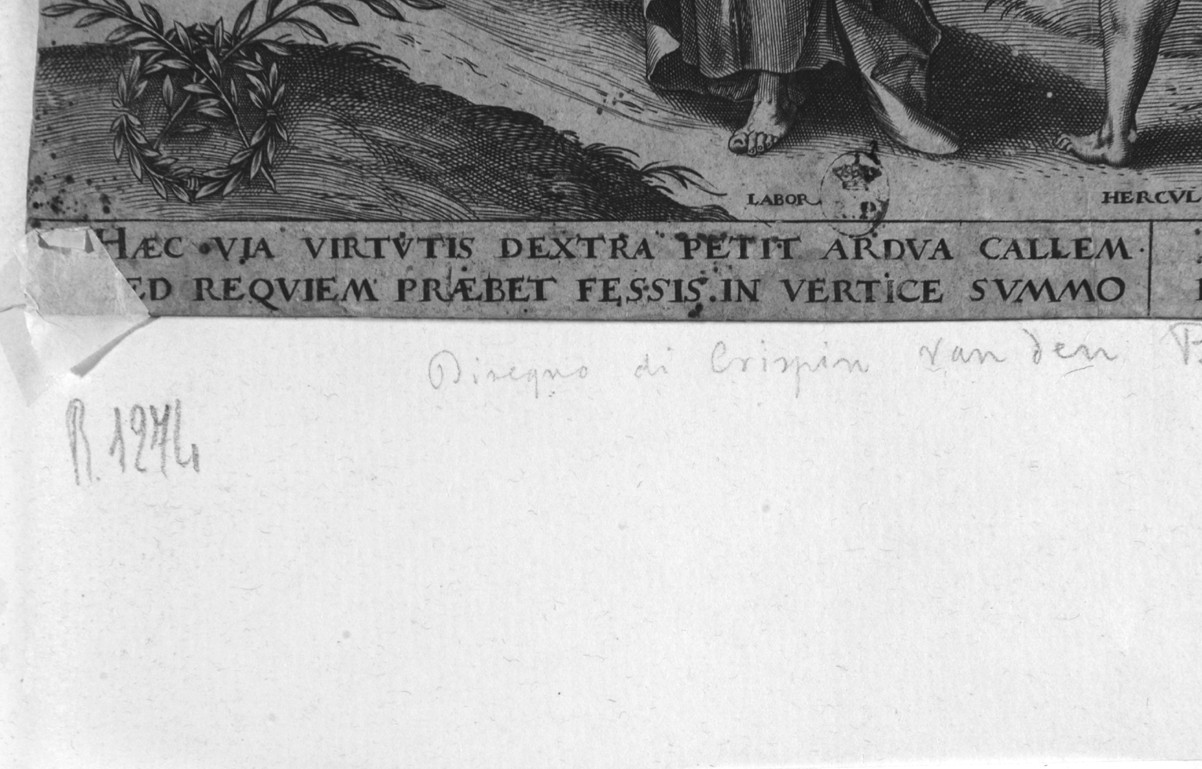 LABOR
HERCVL
HÆC VIA VIRTVTIS DEXTRA PETIT ARDVA CALLEM.
ED REQVIEM PRÆBET FESSIS.IN VERTICE SVMMO
Disegno di Crispin van den
R. 1274